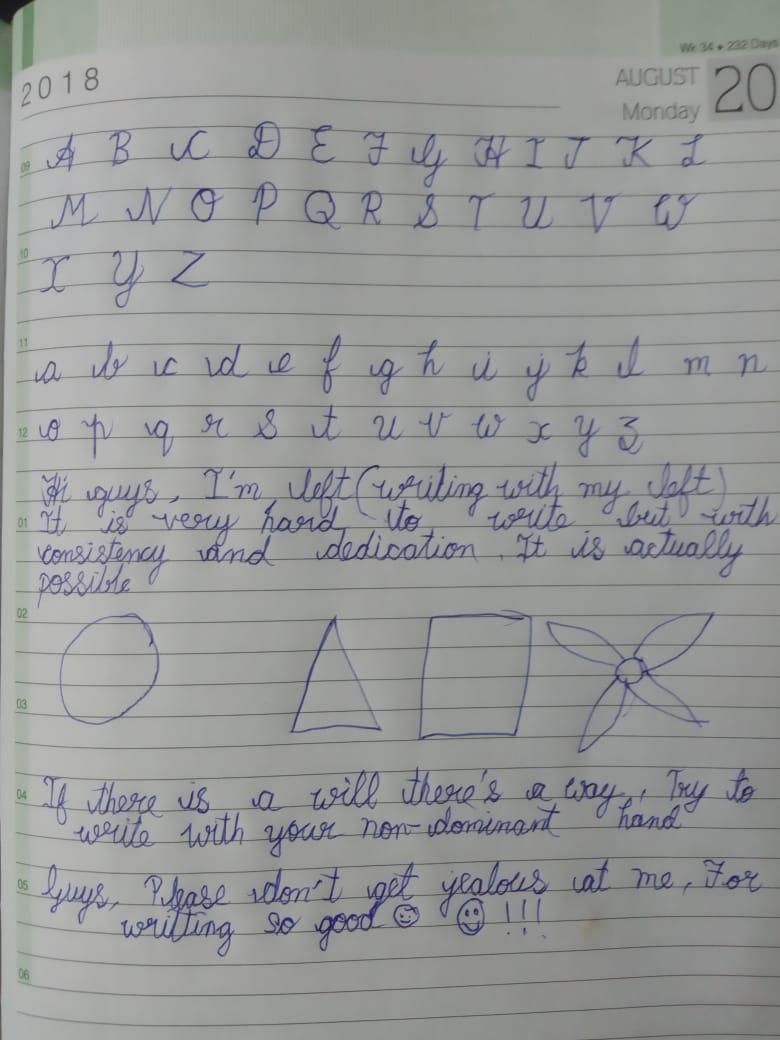 Wk 34 • 232 Days
2018
AUGUST 20
Monday
09 A B C D E F G H I J K L
M N O P Q R S T U V W
10
X Y Z
11
a b c d e f g h i j k l m n
12 o p q r s t u v w x y z
Hi guys, I'm left (writing with my left)
01 It is very hard to write but with
consistency and dedication. It is actually
possible
02
03
04 If there is a will there's a way, Try to
write with your non-dominant hand
05 Guys, Please don't get yealous at me, For
writting so good ☺ ☺ !!!
06